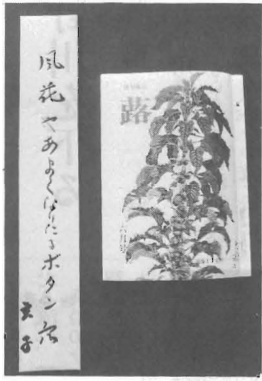 風花やあまくなりたるボタン穴
蕗
六月号